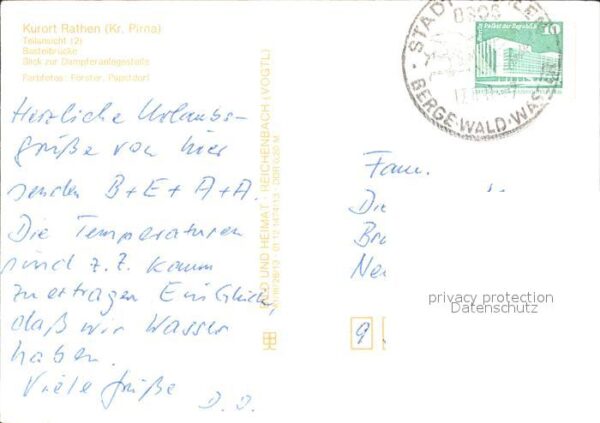 Kurort Rathen (Kr. Pirna)
Teilansicht (2)
Basteibrücke
Blick zur Dampferanlegestelle
Farbfotos: Förster, Papstdorf
Herzliche Urlaubs-
grüße von hier
senden B+E+A+A.
Die Temperaturen
sind z.Z. kaum
zu ertragen Ein Glück,
daß wir Wasser
haben.
Viele Grüße
D. O.
BILD UND HEIMAT · REICHENBACH (VOGTL)
STADT
BERGE·WALD·WASSER
Palast der Republik
10
Fam.
Di
Br
Ne
9
privacy protection
Datenschutz